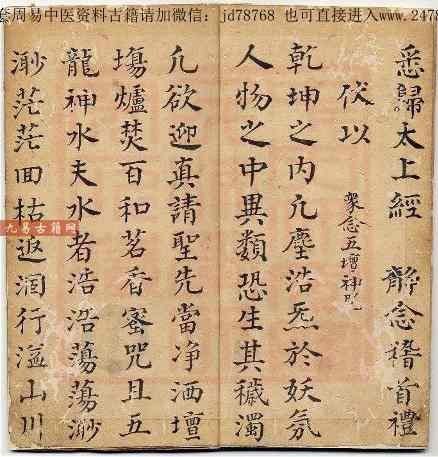 套周易中医资料古籍请加微信：jd78768 也可直接进入www.247
悉歸太上經 靜念稽首禮
伏以 衆念五壇神咒
乾坤之内凢塵浩炁於妖氛
人物之中異類恐生其穢濁
凢欲迎真請聖先當净洒壇
塲爐焚百和茗香蜜咒且五
龍神水夫水者浩浩蕩蕩渺
渺茫茫回枯返涸行溢山川
九易古籍网